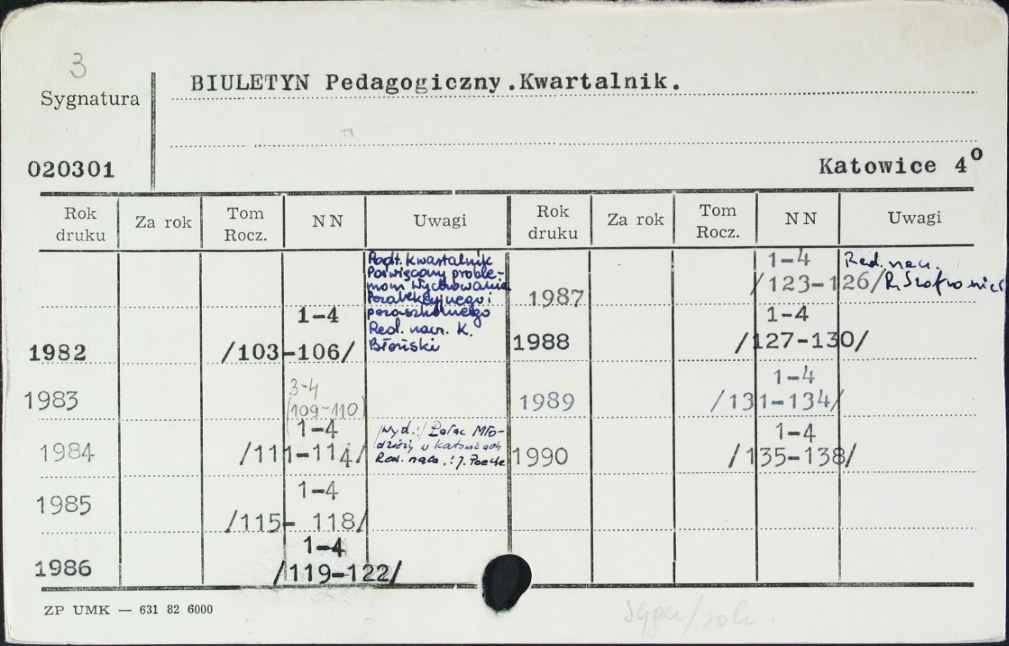 3
Sygnatura
BIULETYN Pedagogiczny.Kwartalnik.
020301
Katowice 4º
Rok druku Za rok Tom Rocz. NN Uwagi Rok druku Za rok Tom Rocz. NN Uwagi
Podt. Kwartalnik
Poświęcony proble-
mom Wychowania
Pozalekcyjnego i
pozaszkolnego
Red. nacz. K.
Błoński
1-4
1982 /103-106/
1983
3-4
/109-110/
1-4
1984 /111-114/
/wyd.:/ Pałac Mło-
dzieży w Katowicach
Red. nacz.: J.
1-4
1985 /115- 118/
1-4
1986 /119-122/
1-4
1987 /123-126/
Red. nau.
1-4
1988 /127-130/
1-4
1989 /131-134/
1-4
1990 /135-138/
ZP UMK — 631 82 6000